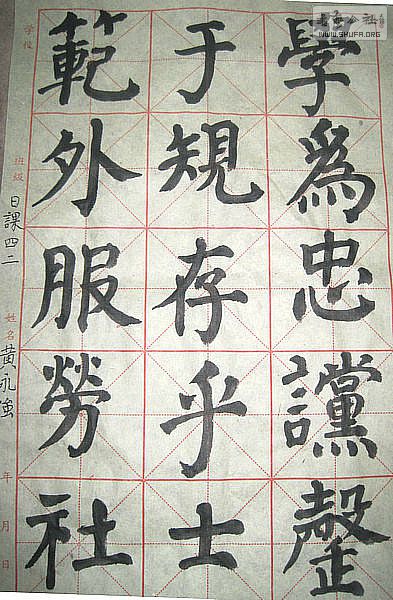 學爲忠讜罄
于規存乎士
範外服勞社
學校
班級 日課四二
姓名 黃永強
年 月 日
公社
WWW.SHUFA.ORG